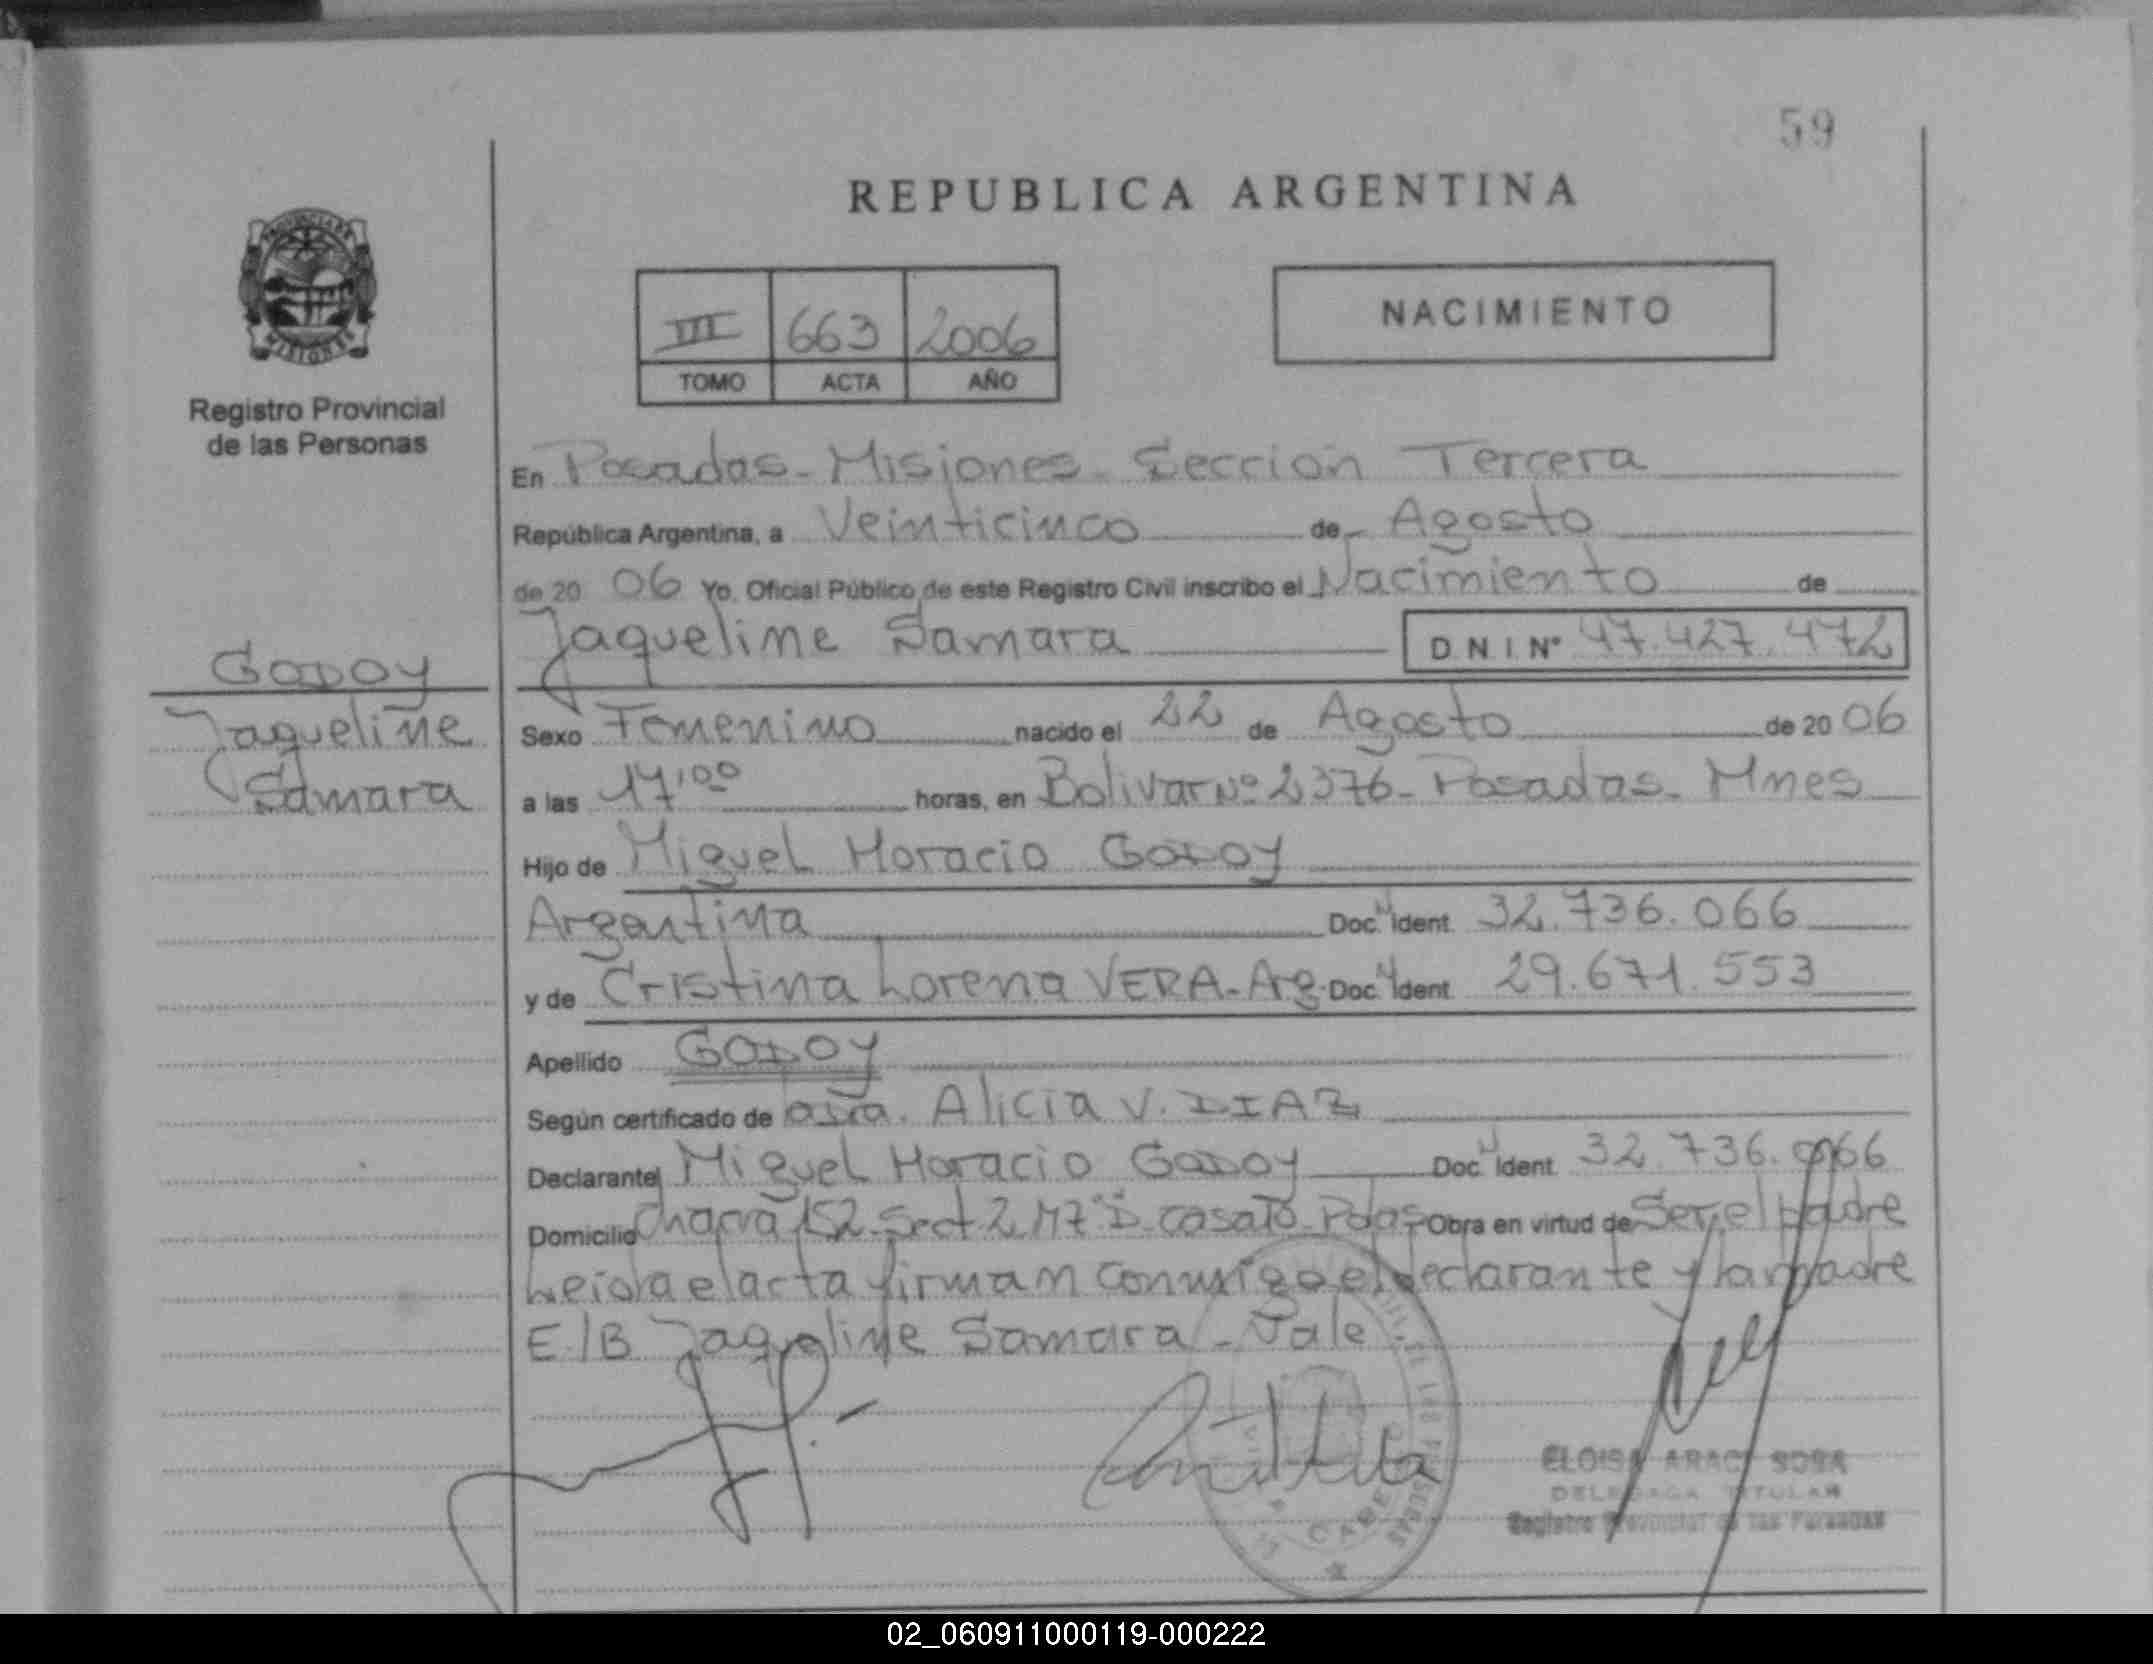 59
REPUBLICA ARGENTINA
PROVINCIA DE
MISIONES
Registro Provincial
de las Personas
III 663 2006
TOMO ACTA AÑO
NACIMIENTO
En Posadas - Misiones - Sección Tercera
República Argentina, a Veinticinco de Agosto
de 20 06 Yo, Oficial Público de este Registro Civil inscribo el Nacimiento de
Jaqueline Samara D.N.I. Nº 47.427.472
GODOY
Jaqueline
Samara
Sexo Femenino nacido el 22 de Agosto de 20 06
a las 17'00 horas, en Bolivar Nº 2376 - Posadas - Mnes
Hijo de Miguel Horacio GODOY
Argentina Doc. Ident. 32.736.066
y de Cristina Lorena VERA - Arg. Doc. Ident. 29.671.553
Apellido GODOY
Según certificado de Alicia V. DIAZ
Declarante Miguel Horacio GODOY Doc. Ident. 32.736.066
Domicilio Chacra 152 - Sect. 2 Mz "D" casa 10 - Pdas - Obra en virtud de Ser el padre
Leida el acta firman conmigo el declarante y la madre
E/B Jaqueline Samara - Vale
ELOISA ARACI SOSA
DELEGADA TITULAR
Registro Provincial de las Personas
02_060911000119-000222